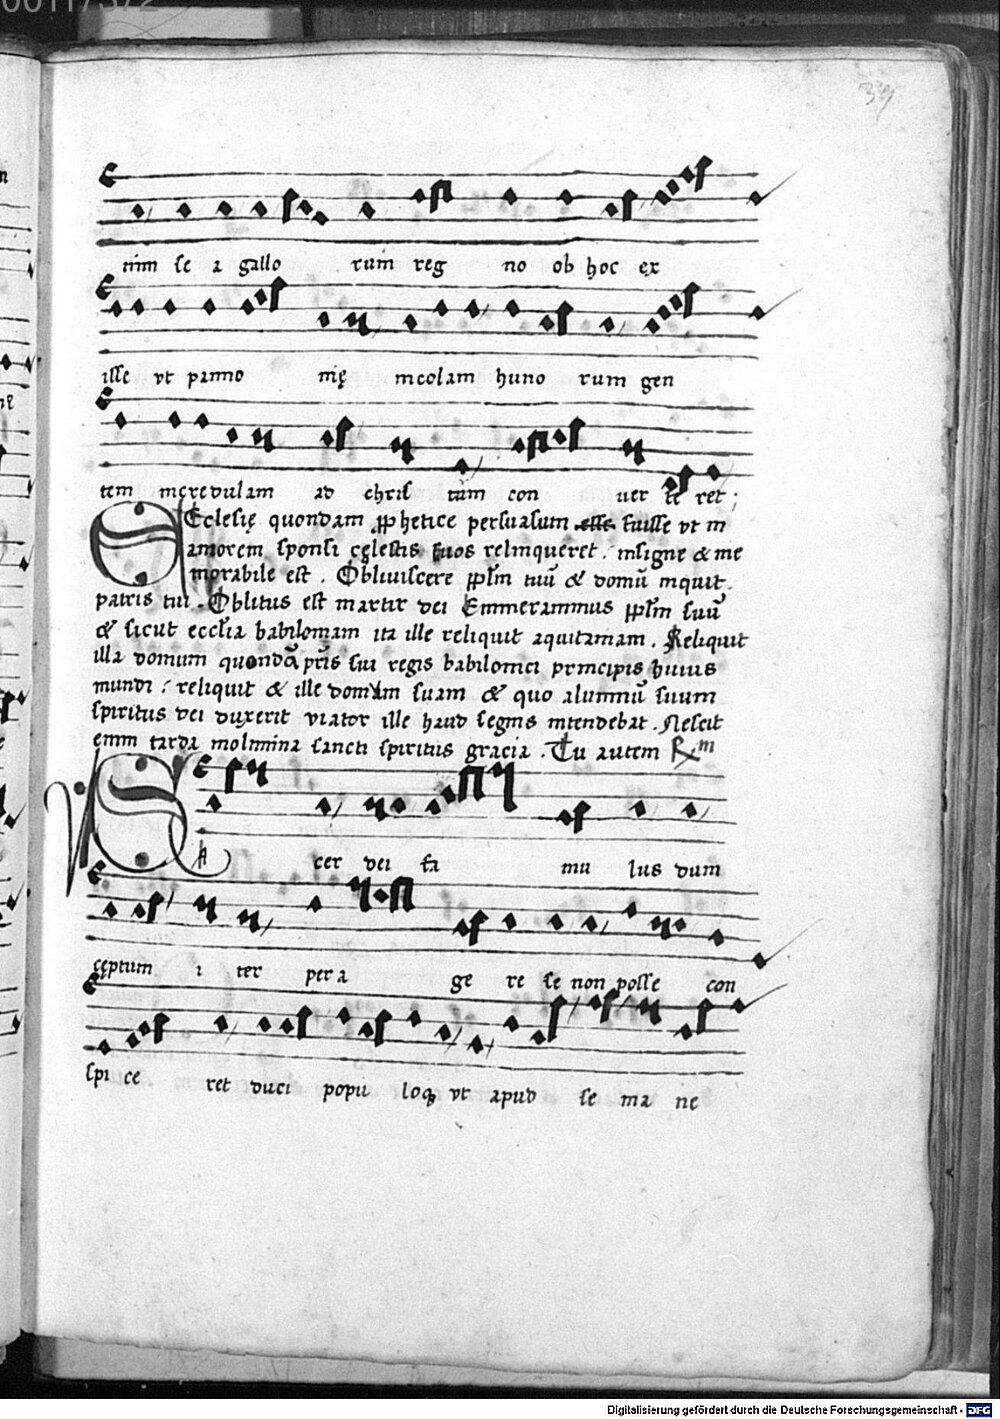 39
nim se a gallo rum reg no ob hoc ex
isse vt panno nię incolam huno rum gen
tem incredulam ad chris tum con uer te ret ;
Eclesię quondam pphetice persuasum esse fuisse vt in
amorem sponsi cęlestis suos relinqueret . insigne & me
morabile est . Obliuiscere pplm tuū & domū inquit .
patris tui . Oblitus est martir dei Emmerammus pplm suū
& sicut ecclia babiloniam ita ille reliquit aquitaniam . Reliquit
illa domum quondā pris sui regis babilonici principis huius
mundi : reliquit & ille domum suam & quo alumnū suum
spiritus dei duxerit viator ille haud segnis intendebat . Nescit
enim tarda molimina sancti spiritus gracia . Tu autem Rm
SA cer dei fa mu lus dum
cęptum i ter pera ge re se non posse con
spi ce ret duci popu loq vt apud se ma ne
Digitalisierung gefördert durch die Deutsche Forschungsgemeinschaft - DFG